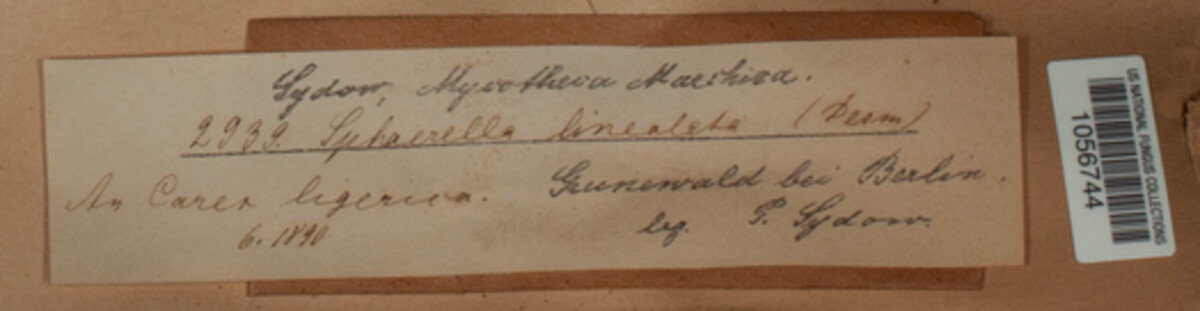 Sydow, Mycotheca Marchica.
2939. Sphaerella lineolata (Desm)
An Carex ligerica. Grunewald bei Berlin.
6. 1890 leg. P. Sydow.
US NATIONAL FUNGUS COLLECTIONS
1056744